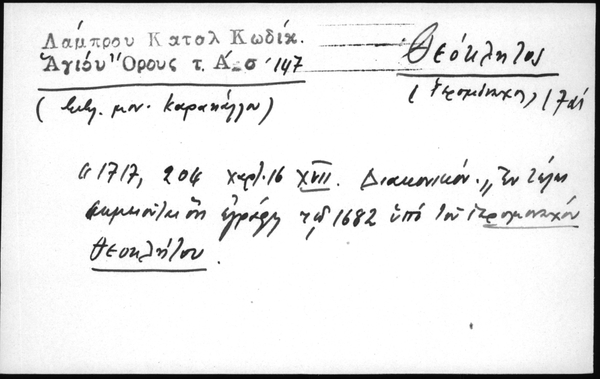 Λάμπρου Καταλ Κωδίκ.
Ἁγίου Ὄρους τ. Α. σ. 147
Θεόκλητος
(Ἱερομόναχος) 17αι
(βιβλ. μον. Καρακάλλου)
"1717, 204 χαρτ. 16 XVII. Διακονικόν. „Ἐν τέλει
σημειοῦται ὅτι ἐγράφη τῷ 1682 ὑπό τοῦ ἱερομονάχου
Θεοκλήτου.